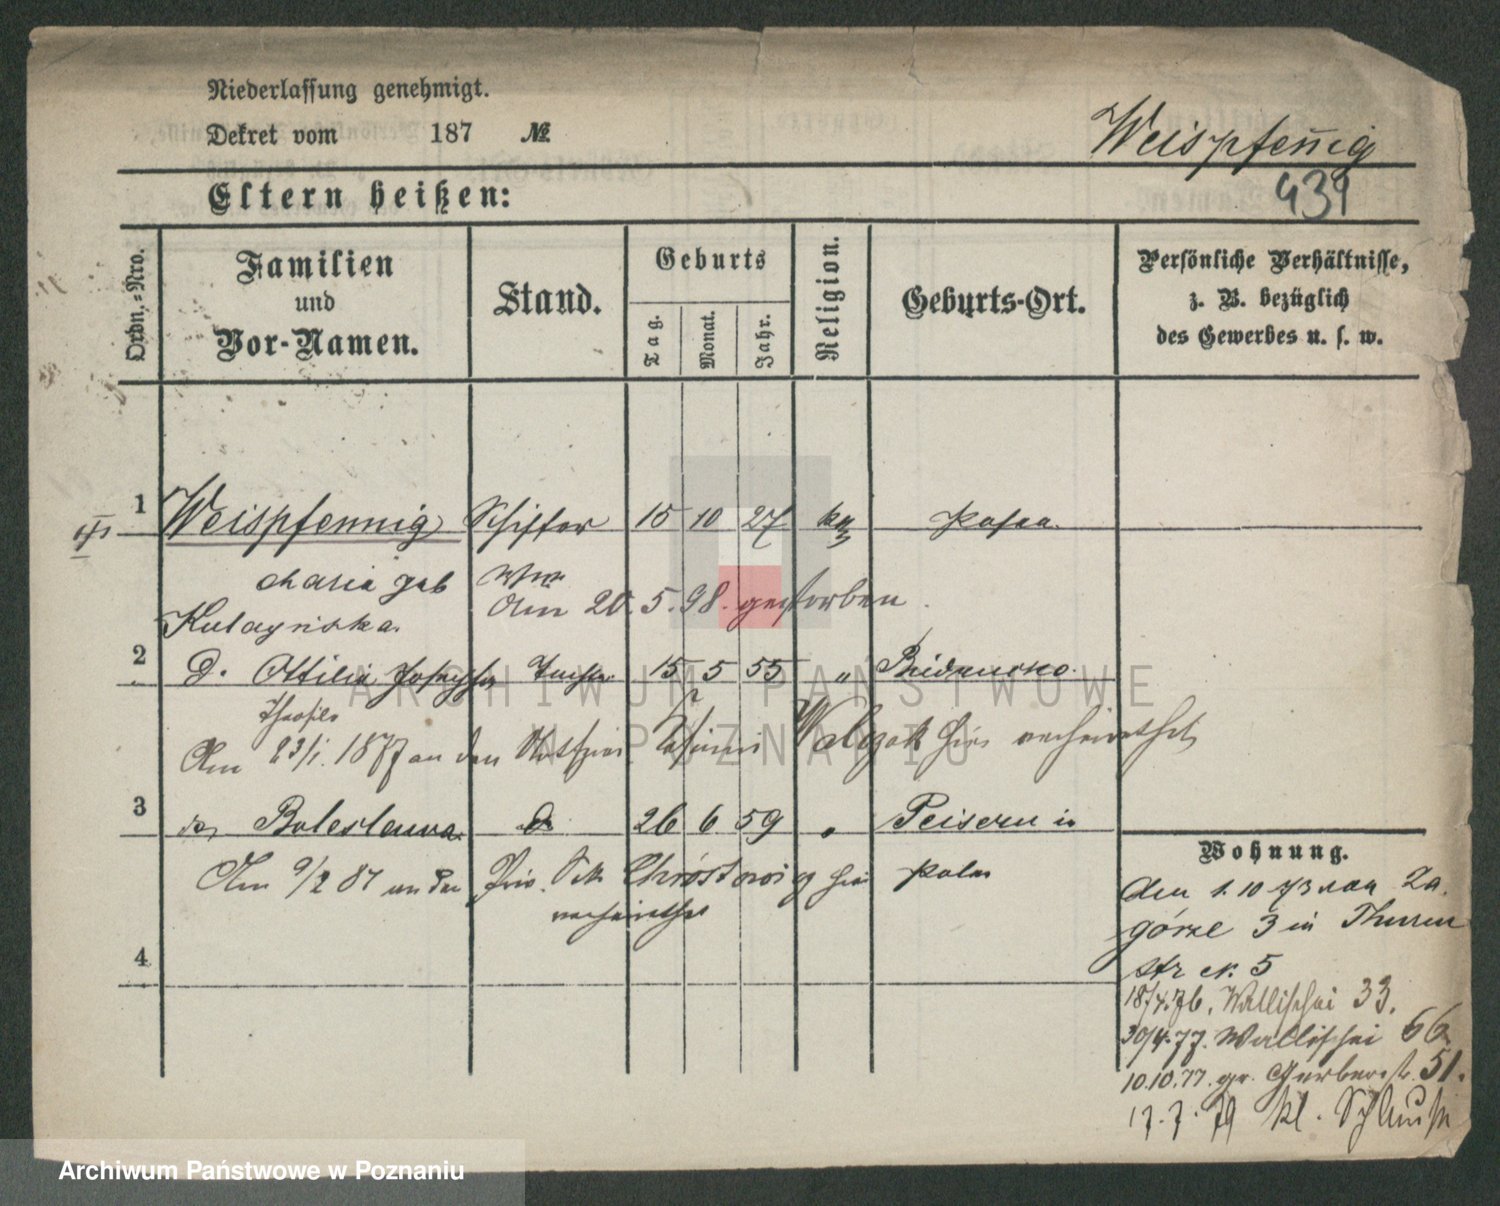 Niederlassung genehmigt.
Dekret vom 187 №
Weispfen̄ig
439
Eltern heißen:
Ordn.-Nro.
Familien und Vor-Namen.
Stand.
Geburts
Tag.
Monat.
Jahr.
Religion.
Geburts-Ort.
Persönliche Verhältnisse, z. B. bezüglich des Gewerbes u. s. w.
1 Weispfennig Schiffer 15 10 27 kath Posen.
Maria geb Wwe
am 20.5.98. gestorben.
2 d. Ottilia Josepha Tochter 15 5 55 „
Theofila
Am 23/1. 1877 an den hier verheirathet
3 Boleslawa do 26 6 59 „ Peisern in
Am 9/2 87 an den Chróstowicz hier Polen
verheirathet
4
Wohnung.
Am 1.10 73 von Za
górze 3 in Thurm
str N. 5
18/4.76. Wallischei 33.
30/4.77. Wallischei 66
10.10.77. gr. Gerberstr. 51.
17.7.79 kl.
ARCHIWUM PAŃSTWOWE
W POZNANIU
Archiwum Państwowe w Poznaniu